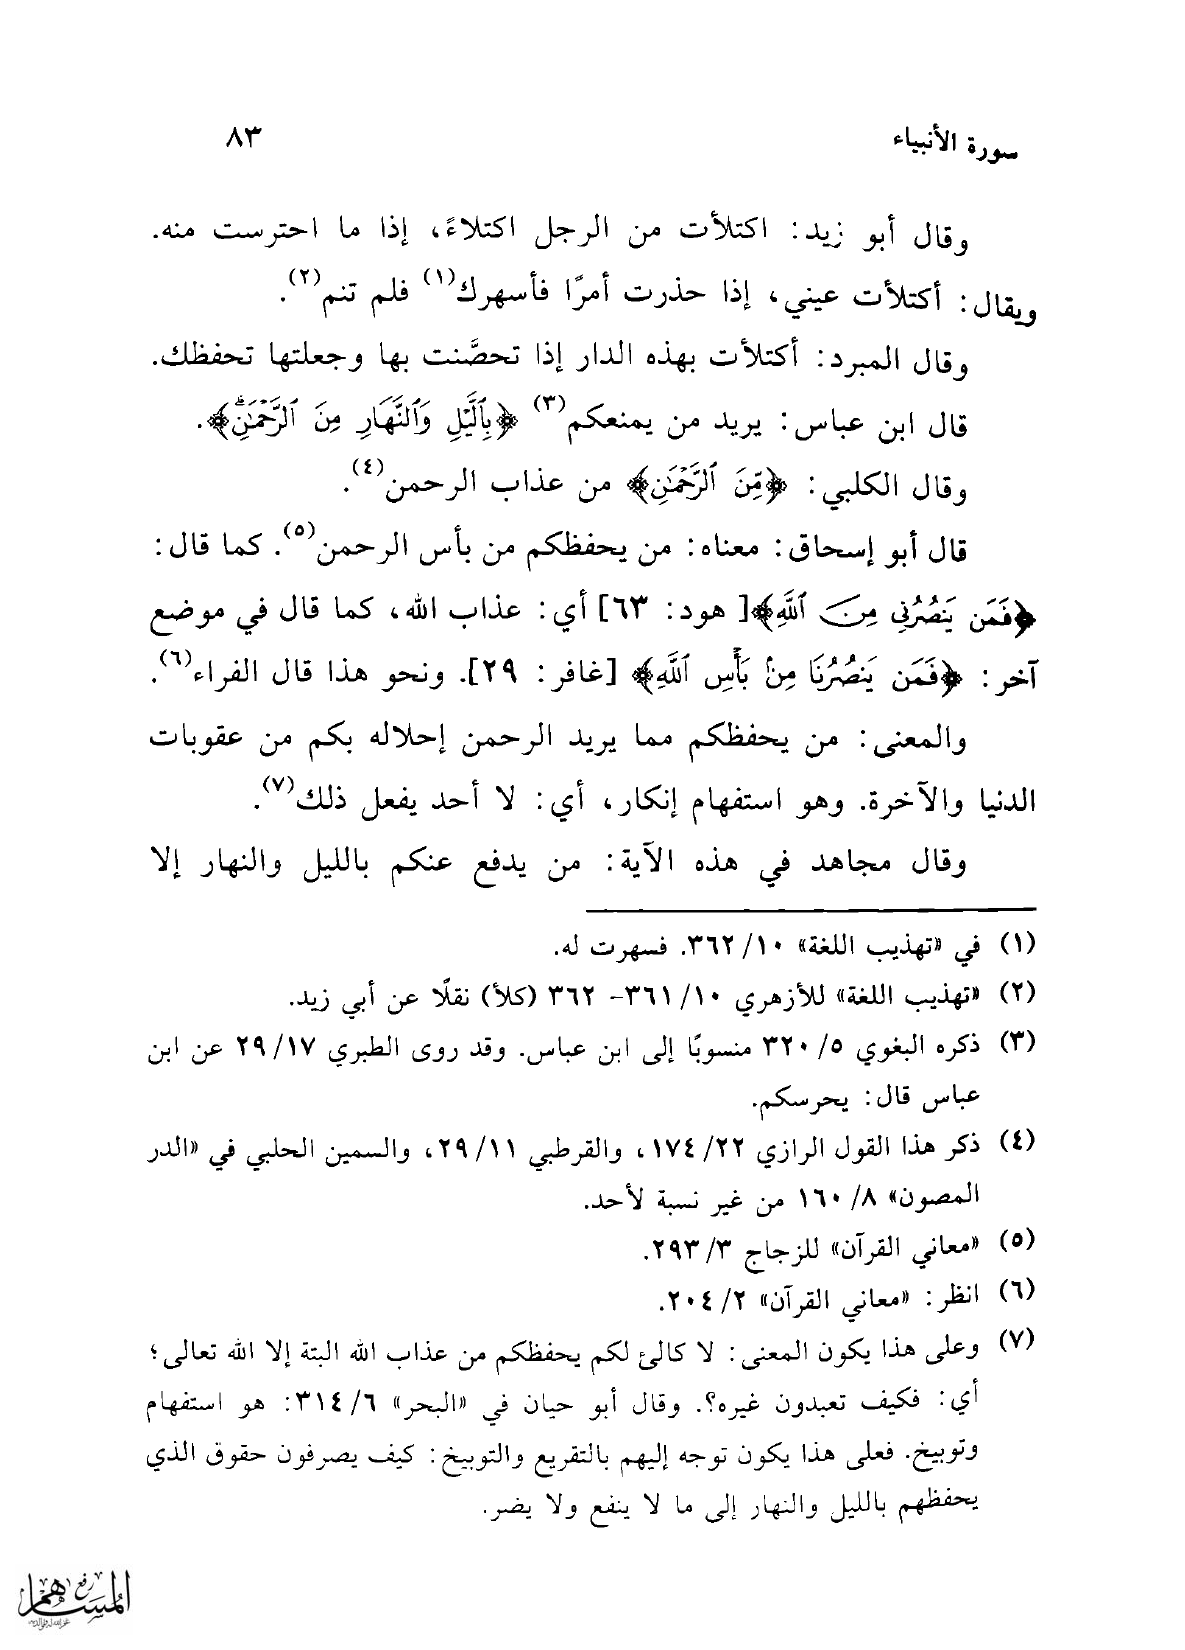 سورة الأنبياء ٨٣
وقال أبو زيد: اكتلأت من الرجل اكتلاءً، إذا ما احترست منه.
ويقال: أكتلأت عيني، إذا حذرت أمرًا فأسهرك(١) فلم تنم(٢).
وقال المبرد: أكتلأت بهذه الدار إذا تحصَّنت بها وجعلتها تحفظك.
قال ابن عباس: يريد من يمنعكم(٣) ﴿بِٱلَّيۡلِ وَٱلنَّهَارِ مِنَ ٱلرَّحۡمَٰنِۚ﴾.
وقال الكلبي: ﴿مِّنَ ٱلرَّحۡمَٰنِ﴾ من عذاب الرحمن(٤).
قال أبو إسحاق: معناه: من يحفظكم من بأس الرحمن(٥). كما قال:
﴿فَمَن يَنصُرُنِي مِنَ ٱللَّهِ﴾[ هود: ٦٣] أي: عذاب الله، كما قال في موضع
آخر: ﴿فَمَن يَنصُرُنَا مِنۢ بَأۡسِ ٱللَّهِ﴾ [غافر: ٢٩]. ونحو هذا قال الفراء(٦).
والمعنى: من يحفظكم مما يريد الرحمن إحلاله بكم من عقوبات
الدنيا والآخرة. وهو استفهام إنكار، أي: لا أحد يفعل ذلك(٧).
وقال مجاهد في هذه الآية: من يدفع عنكم بالليل والنهار إلا
(١) في «تهذيب اللغة» ١٠/ ٣٦٢. فسهرت له.
(٢) «تهذيب اللغة» للأزهري ١٠/ ٣٦١- ٣٦٢ (كلأ) نقلًا عن أبي زيد.
(٣) ذكره البغوي ٥/ ٣٢٠ منسوبًا إلى ابن عباس. وقد روى الطبري ١٧/ ٢٩ عن ابن
عباس قال: يحرسكم.
(٤) ذكر هذا القول الرازي ٢٢/ ١٧٤، والقرطبي ١١/ ٢٩، والسمين الحلبي في «الدر
المصون» ٨/ ١٦٠ من غير نسبة لأحد.
(٥) «معاني القرآن» للزجاج ٣/ ٢٩٣.
(٦) انظر: «معاني القرآن» ٢/ ٢٠٤.
(٧) وعلى هذا يكون المعنى: لا كالئ لكم يحفظكم من عذاب الله البتة إلا الله تعالى؛
أي: فكيف تعبدون غيره؟. وقال أبو حيان في «البحر» ٦/ ٣١٤: هو استفهام
وتوبيخ. فعلى هذا يكون توجه إليهم بالتقريع والتوبيخ: كيف يصرفون حقوق الذي
يحفظهم بالليل والنهار إلى ما لا ينفع ولا يضر.
رفع
المساهم